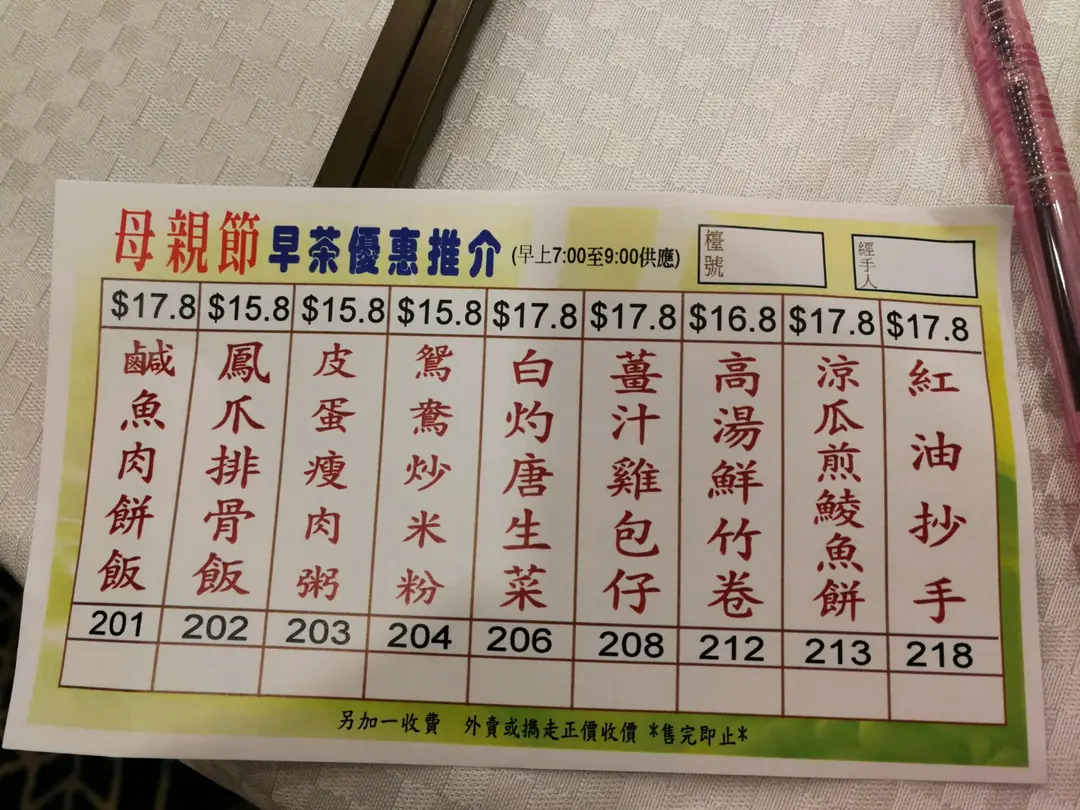 母親節早茶優惠推介 (早上7:00至9:00供應)
檯號
經手人
$17.8 $15.8 $15.8 $15.8 $17.8 $17.8 $16.8 $17.8 $17.8
鹹魚肉餅飯
鳳爪排骨飯
皮蛋瘦肉粥
鴛鴦炒米粉
白灼唐生菜
薑汁雞包仔
高湯鮮竹卷
涼瓜煎鯪魚餅
紅油抄手
201 202 203 204 206 208 212 213 218
另加一收費 外賣或攜走正價收價 *售完即止*